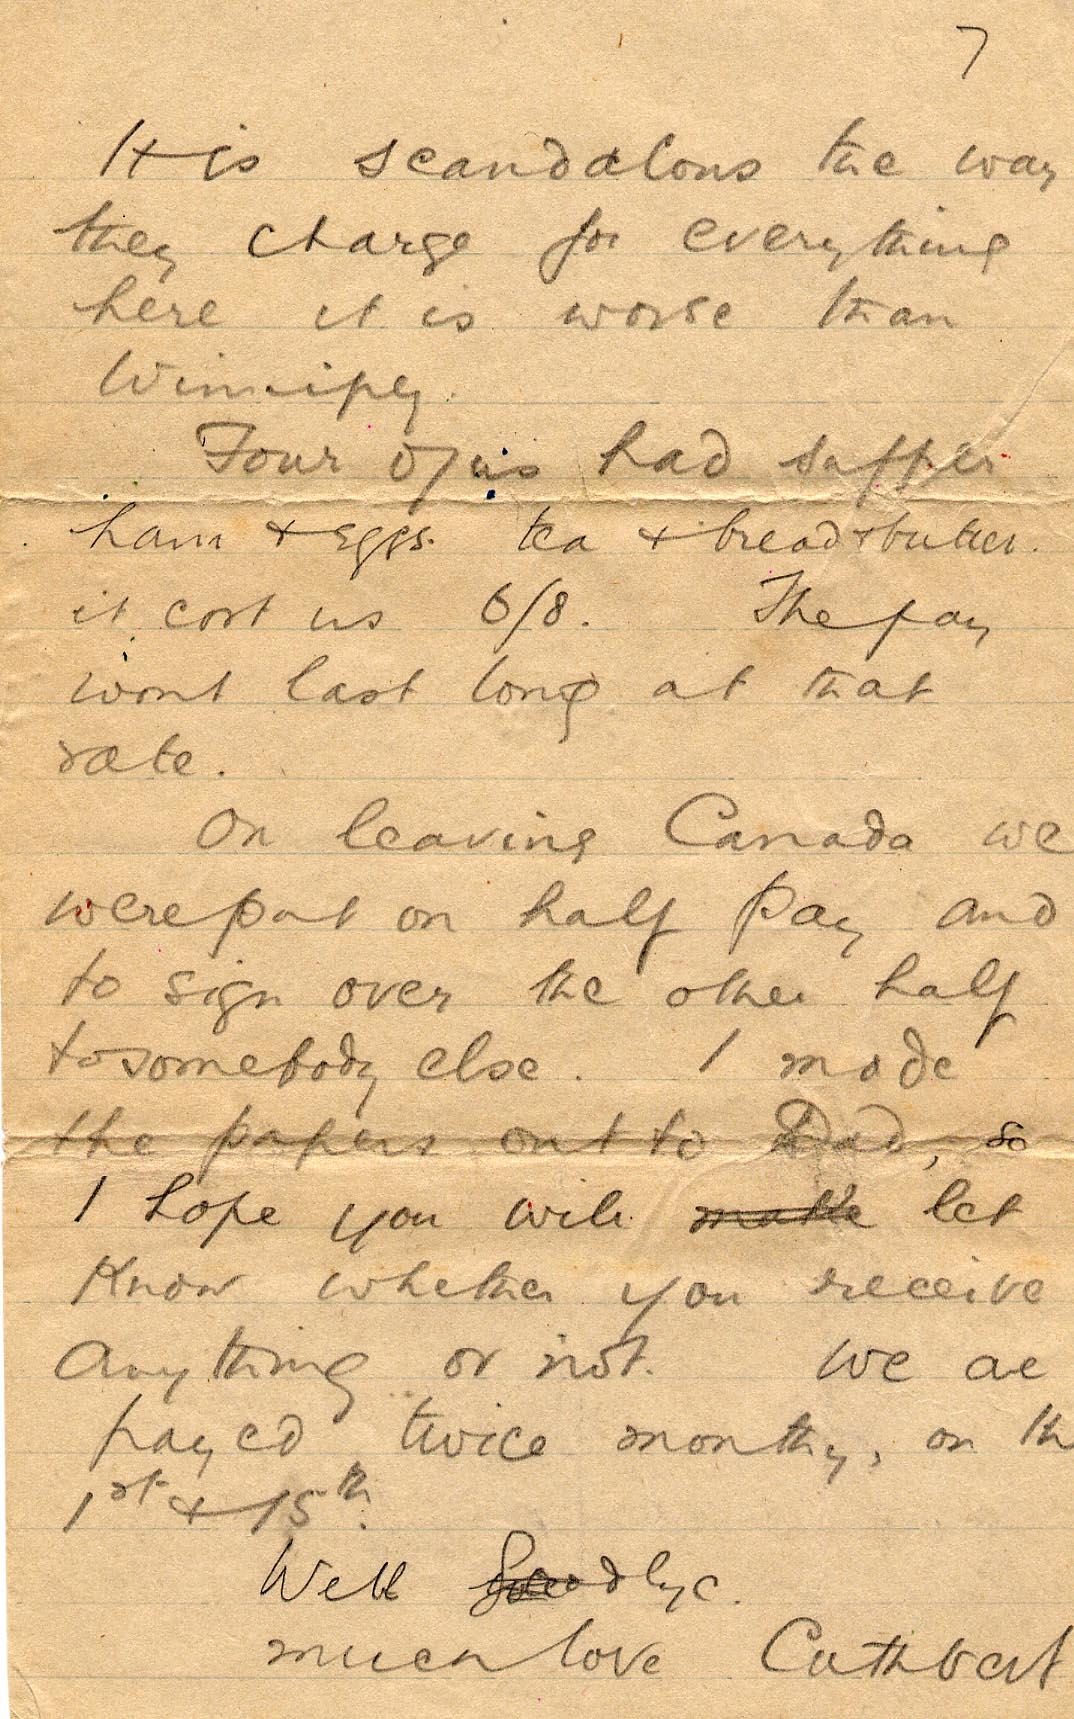 7
It is scandalous the way
they charge for everything
here it is worse than
Winnipeg.
Four of us had supper
ham + eggs. tea + bread + butter.
it cost us 6/8. The pay
wont last long at that
rate.
On leaving Canada we
were put on half pay and
to sign over the other half
to somebody else. I made
the papers out to Dad, so
I hope you will make let
know whether you receive
anything or not. We are
payed twice monthy, on th
1st + 15th.
Well Goodbye.
much love Cuthbert